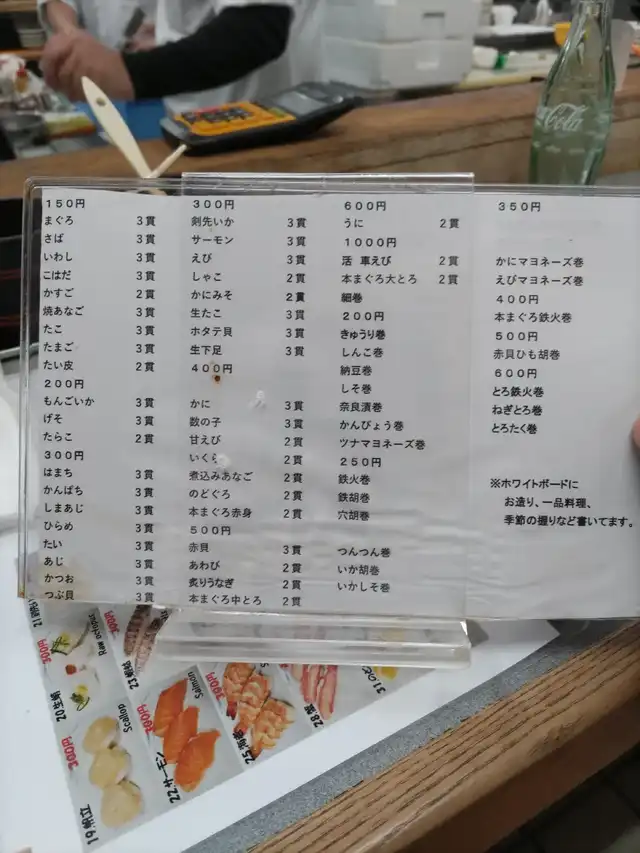 150円
まぐろ 3貫
さば 3貫
いわし 3貫
こはだ 3貫
かすご 2貫
焼あなご 3貫
たこ 3貫
たまご 3貫
たい皮 2貫
200円
もんごいか 3貫
げそ 3貫
たらこ 2貫
300円
はまち 3貫
かんぱち 3貫
しまあじ 3貫
ひらめ 3貫
たい 3貫
あじ 3貫
かつお 3貫
つぶ貝 3貫
300円
剣先いか 3貫
サーモン 3貫
えび 3貫
しゃこ 2貫
かにみそ 2貫
生たこ 3貫
ホタテ貝 3貫
生下足 3貫
400円
かに 3貫
数の子 3貫
甘えび 3貫
いくら 2貫
煮込みあなご 2貫
のどぐろ 2貫
本まぐろ赤身 2貫
500円
赤貝 3貫
あわび 2貫
炙りうなぎ 2貫
本まぐろ中とろ 2貫
600円
うに 2貫
1000円
活 車えび 2貫
本まぐろ大とろ 2貫
細巻
200円
きゅうり巻
しんこ巻
納豆巻
しそ巻
奈良漬巻
かんぴょう巻
ツナマヨネーズ巻
250円
鉄火巻
鉄胡巻
穴胡巻
つんつん巻
いか胡巻
いかしそ巻
350円
かにマヨネーズ巻
えびマヨネーズ巻
400円
本まぐろ鉄火巻
500円
赤貝ひも胡巻
600円
とろ鉄火巻
ねぎとろ巻
とろたく巻
※ホワイトボードに
お造り、一品料理、
季節の握りなど書いてます。
Coca-Cola
300円
Raw octopus
300円
Scallop
300円
Salmon
20生蛸
19帆立
22サーモン